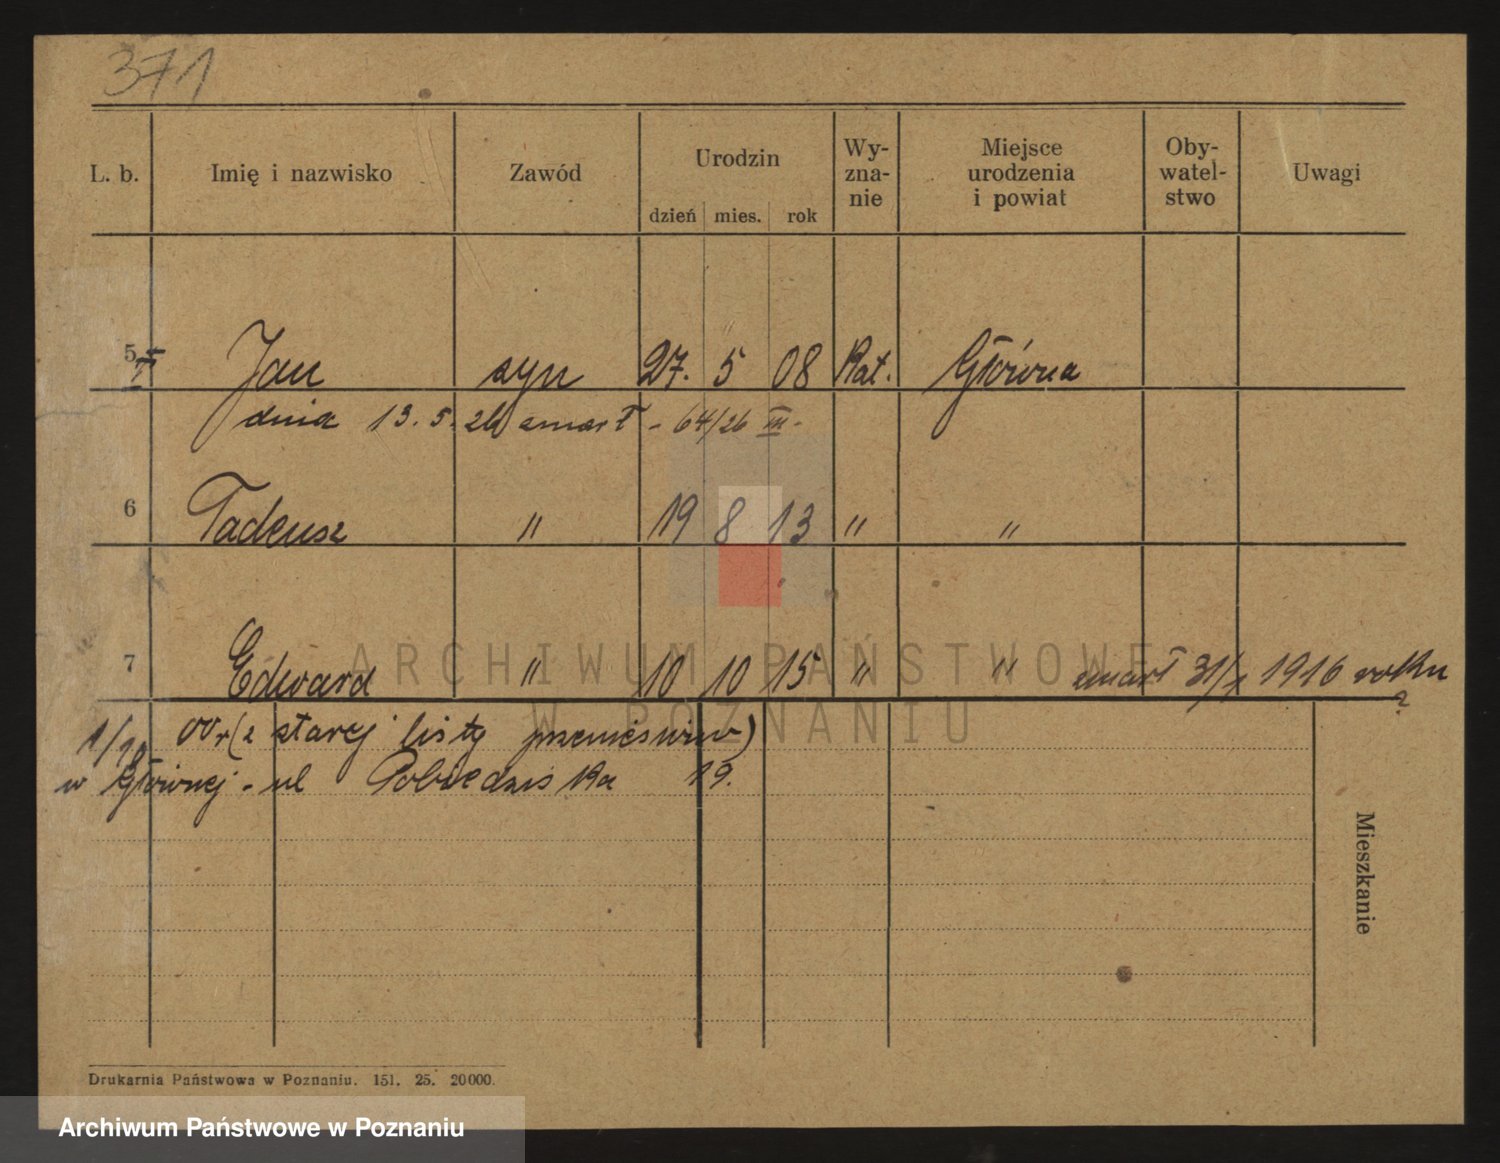 371
L. b. Imię i nazwisko Zawód Urodzin Wy-zna-nie Miejsce urodzenia i powiat Oby-watel-stwo Uwagi
dzień mies. rok
5 Jan syn 27. 5 08 Kat. Główna
dnia 13.5.26 zmarł - 64/26 III -
6 Tadeusz " 19 8 13 " "
7 Edward " 10 10 15 " " zmarł 31/1 1916 roku
ARCHIWUM PAŃSTWOWE
W POZNANIU
(z starej listy
w Głównej - ul Pobiedziska 19.
Mieszkanie
Drukarnia Państwowa w Poznaniu. 151. 25. 20000.
Archiwum Państwowe w Poznaniu